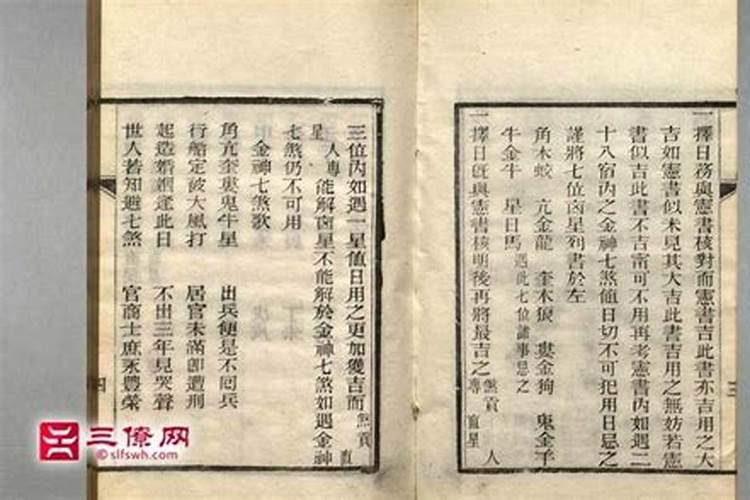 一擇日務與憲書核對而憲書吉此書亦吉用之大
吉如憲書似未見其大吉此書吉用之無妨若憲
書似吉此書不吉甯可不用再考憲書內如遇二
十八宿內之金神七煞值日切不可犯用日忌之
謹將七位凶星列書於左
角木蛟 亢金龍 奎木狼 婁金狗 鬼金羊
牛金牛 星日馬 遇此七位諸事忌之
一擇日旣與憲書核明後再將最吉之煞貢 人專 直星
三
三位內如遇一星值日用之更加獲吉而煞貢 直
星 人專 能解凶星不能解於金神七煞如遇金神
七煞仍不可用
金神七煞歌
角亢奎婁鬼牛星 出兵便是不囘兵
行船定被大風打 居官未滿卽遭刑
起造婚姻逢此日 不出三年見哭聲
世人若知避七煞 官商士庶永豐榮
四
三僚网
©slfswh.com